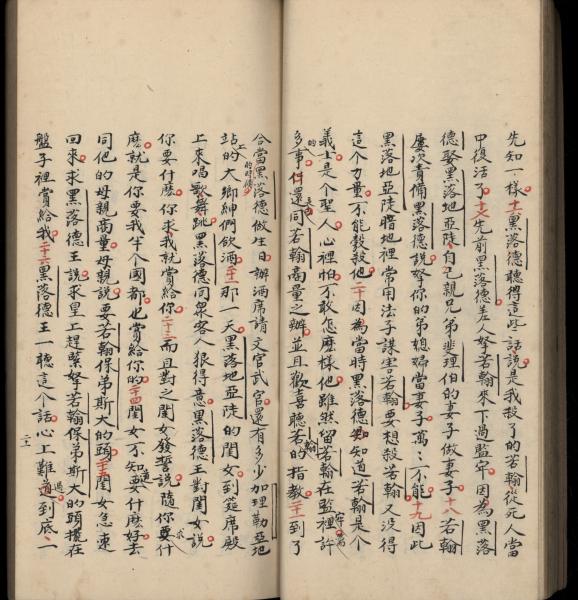 先知一樣十六黑落德聽得這些話說是我殺了的若翰從死人當
中復活了十七先前黑落德差人拏若翰來下過監牢因為黑落
德娶黑落地亞陡自己親兄弟悲理伯的妻子做妻子十八若翰
屢次責備黑落德說拏你的弟媳婦當妻子萬萬不能十九因此
黑落地亞陡暗地裡常用法子謀害若翰要想殺若翰又沒得
這个力量不能彀殺他二十因為當時黑落德知道若翰是个
義士是个聖人心裡怕不敢怎麼樣他雖然留若翰在監裡許
多事件還同若翰商量之辦並且歡喜聽若翰的指教二十一到了
合當黑落德做生日辦酒席請文官武官還有多少加理勒亞地
站的大鄉紳們飲酒二十二那一天黑落地亞陡的閨女到筵席殿
上來唱歌舞跳黑落德同衆客人狠得意黑落德王對閨女說
你要什麼你求我就賞給你二十三而且對之閨女發誓說隨你要什
麼就是你要我半个國都也賞給你的二十四閨女不知道要什麼好去
同他的母親商量母親說要若翰保弟斯大的頭二十五閨女急速
回來求黑落德王說求皇上趕緊拏若翰保弟斯大的頭擺在
盤子裡賞給我二十六黑落德王一聽這个話心上難過到底一